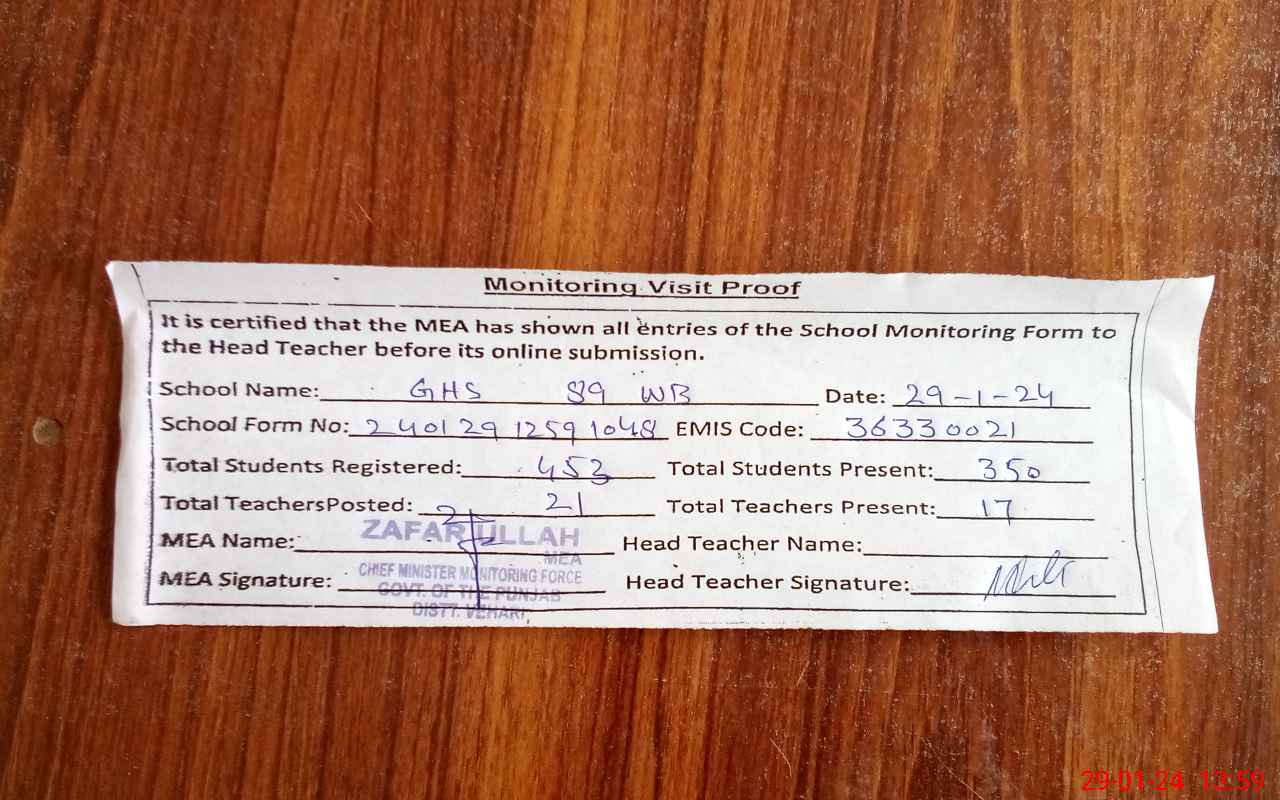 Monitoring Visit Proof
It is certified that the MEA has shown all entries of the School Monitoring Form to
the Head Teacher before its online submission.
School Name: GHS 89 WB Date: 29-1-24
School Form No: 240129 12591048 EMIS Code: 36330021
Total Students Registered: 453 Total Students Present: 350
Total TeachersPosted: 21 Total Teachers Present: 17
MEA Name: ZAFAR ULLAH Head Teacher Name:
MEA
MEA Signature: CHIEF MINISTER MONITORING FORCE Head Teacher Signature:
GOVT. OF THE PUNJAB
DISTT. VEHARI
29-01-24 13:59